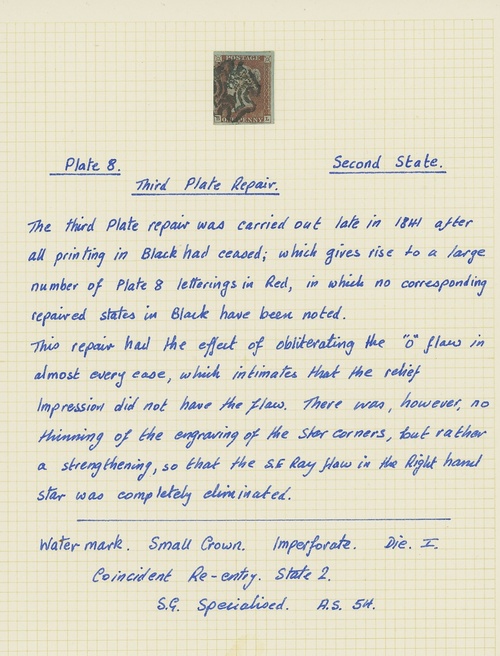 POSTAGE
Plate 8. Second State.
Third Plate Repair.
The third Plate repair was carried out late in 1841 after
all printing in Black had ceased; which gives rise to a large
number of Plate 8 letterings in Red, in which no corresponding
repaired states in Black have been noted.
This repair had the effect of obliterating the "O" flaw in
almost every case, which intimates that the relief
Impression did not have the flaw. There was, however, no
thinning of the engraving of the star corners, but rather
a strengthening, so that the S.E Ray flaw in the Right hand
star was completely eliminated.
Watermark. Small Crown. Imperforate. Die. I.
Coincident Re-entry. State 2.
S.G. Specialised. A.S. 54.